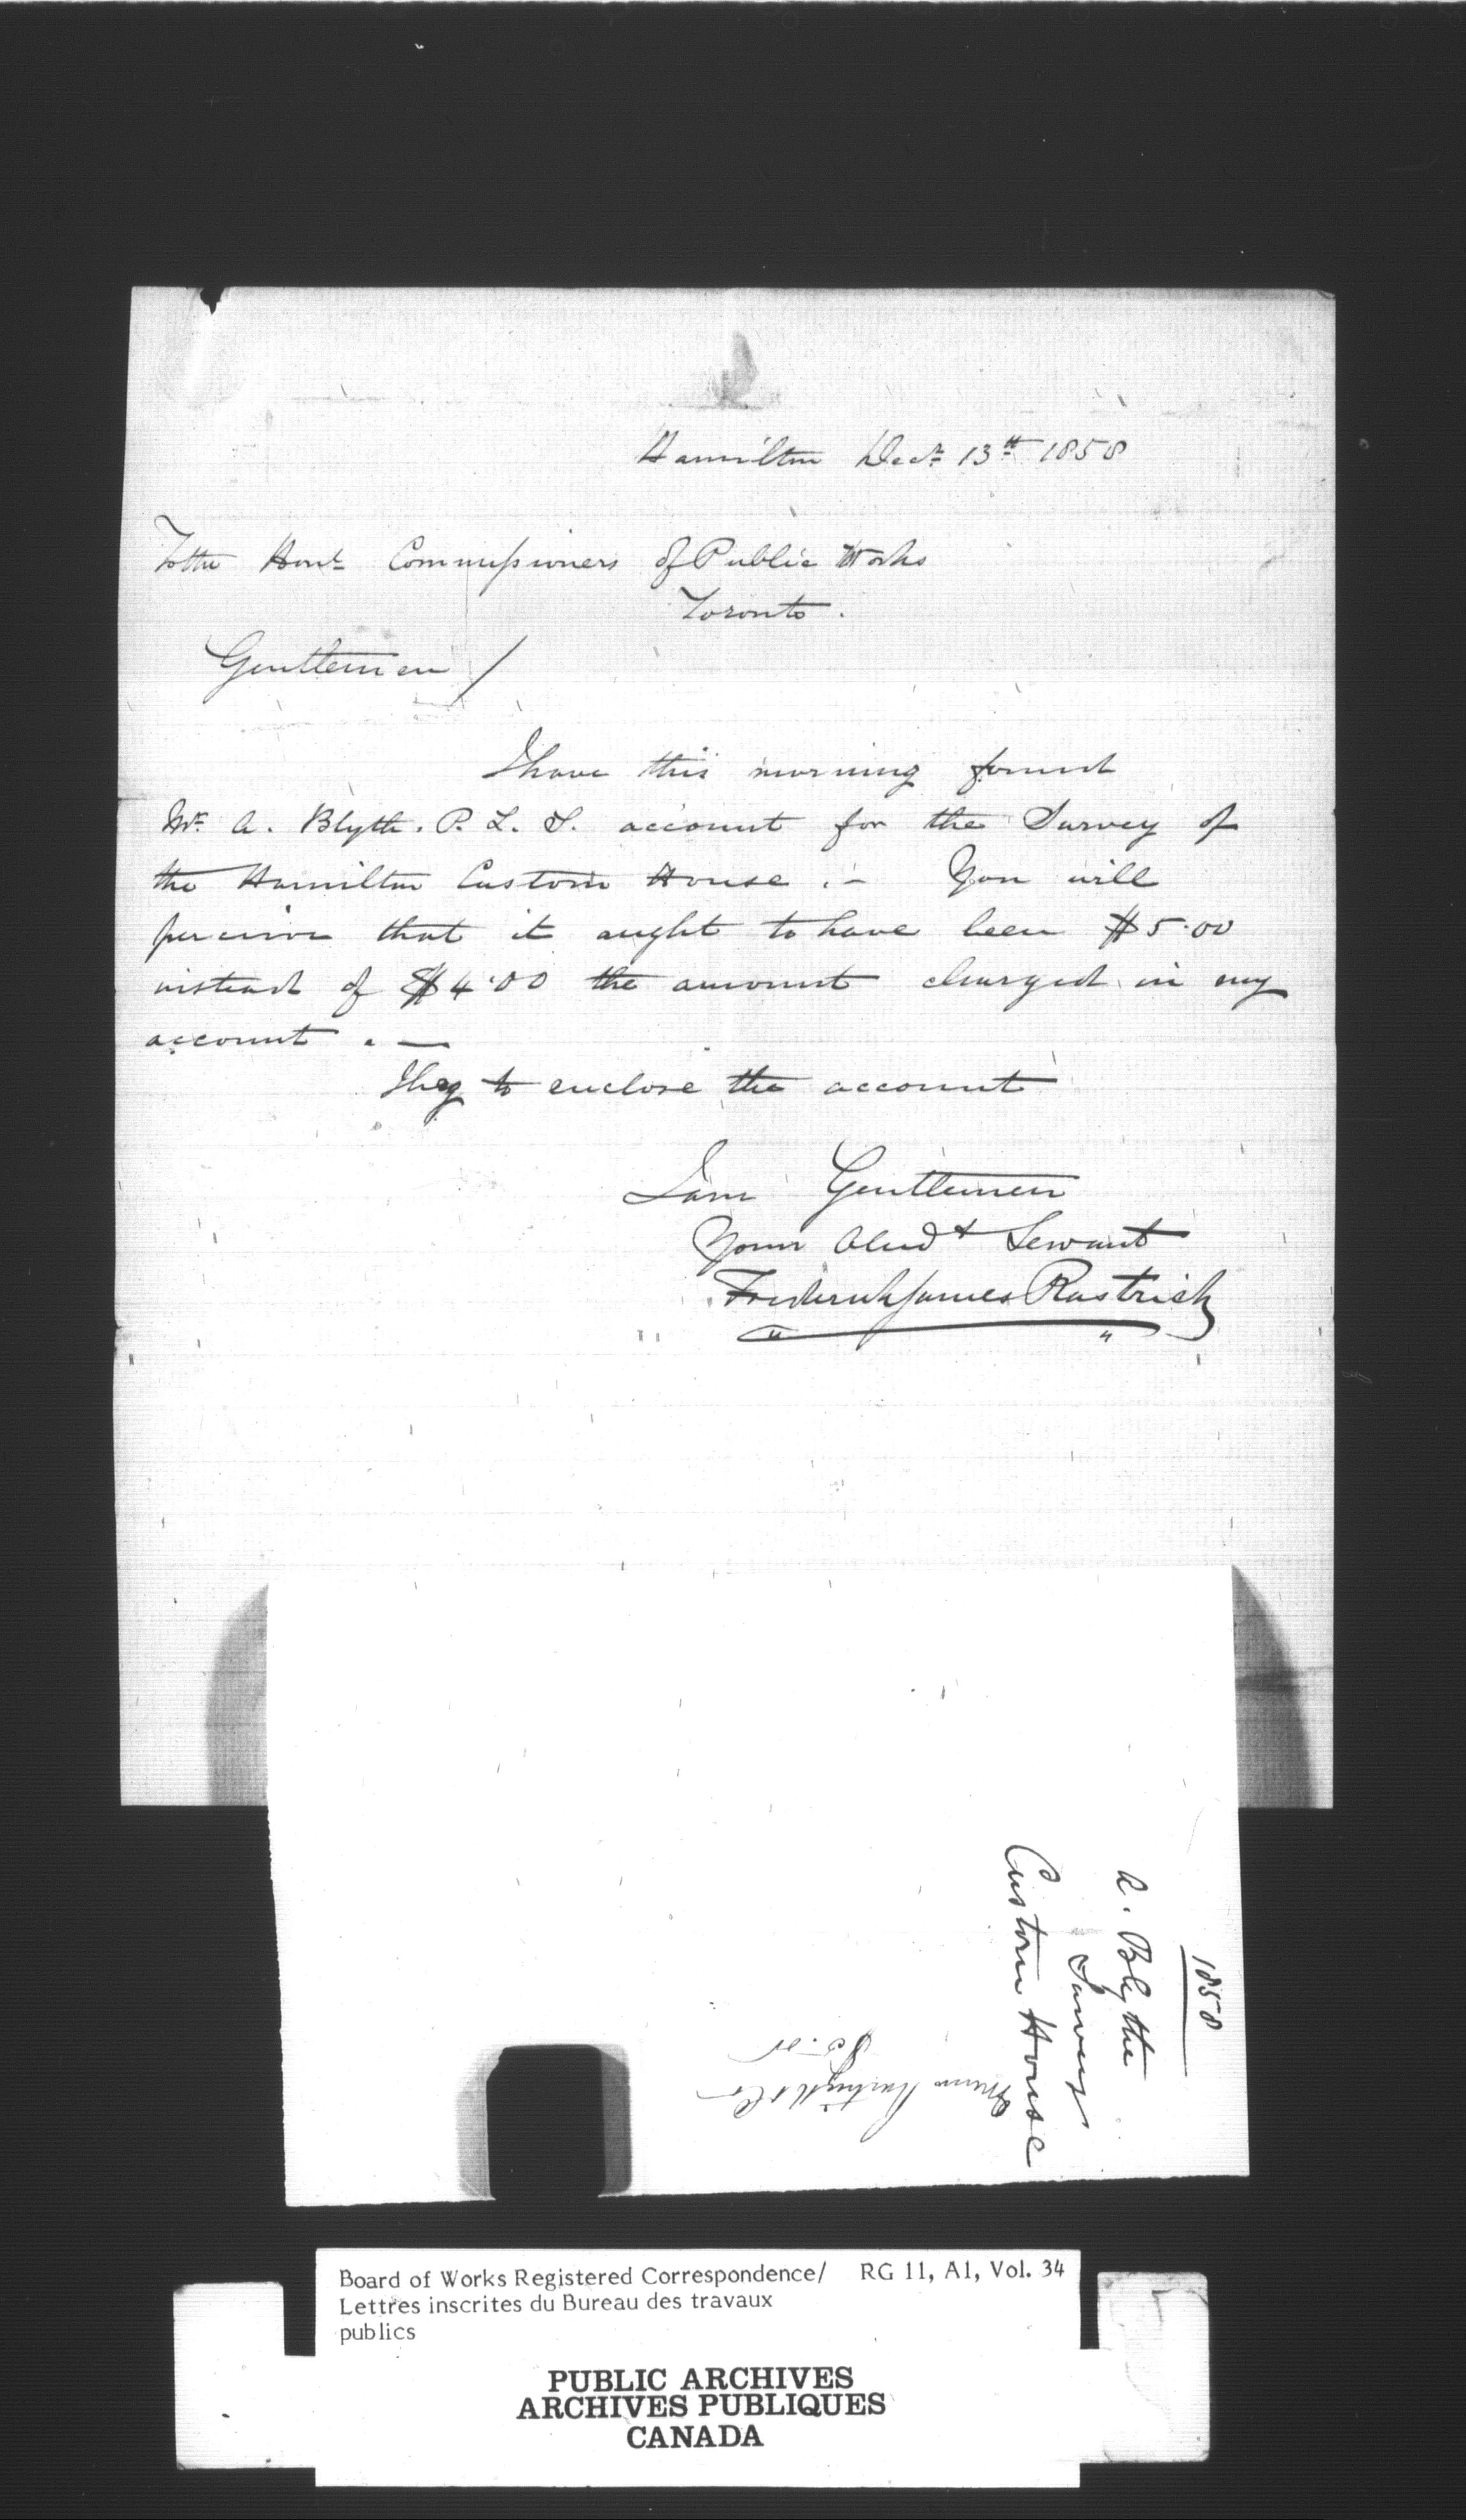 Hamilton Decr 13th 1858
To the Honl Commissioners of Public Works
Toronto.
Gentlemen /
I have this morning found
Mr A. Blyth. P. L. S. account for the Survey of
the Hamilton Custom House . – You will
perceive that it aught to have been $5.00
instead of $4.00 the amount charged in my
account . —
I beg to enclose the account
I am Gentlemen
Your Obed t Servant
Frederick James Rastrick
1858
A. Blythe
Survey
Custom House
Board of Works Registered Correspondence/ RG 11, A1, Vol. 34
Lettres inscrites du Bureau des travaux
publics
PUBLIC ARCHIVES
ARCHIVES PUBLIQUES
CANADA